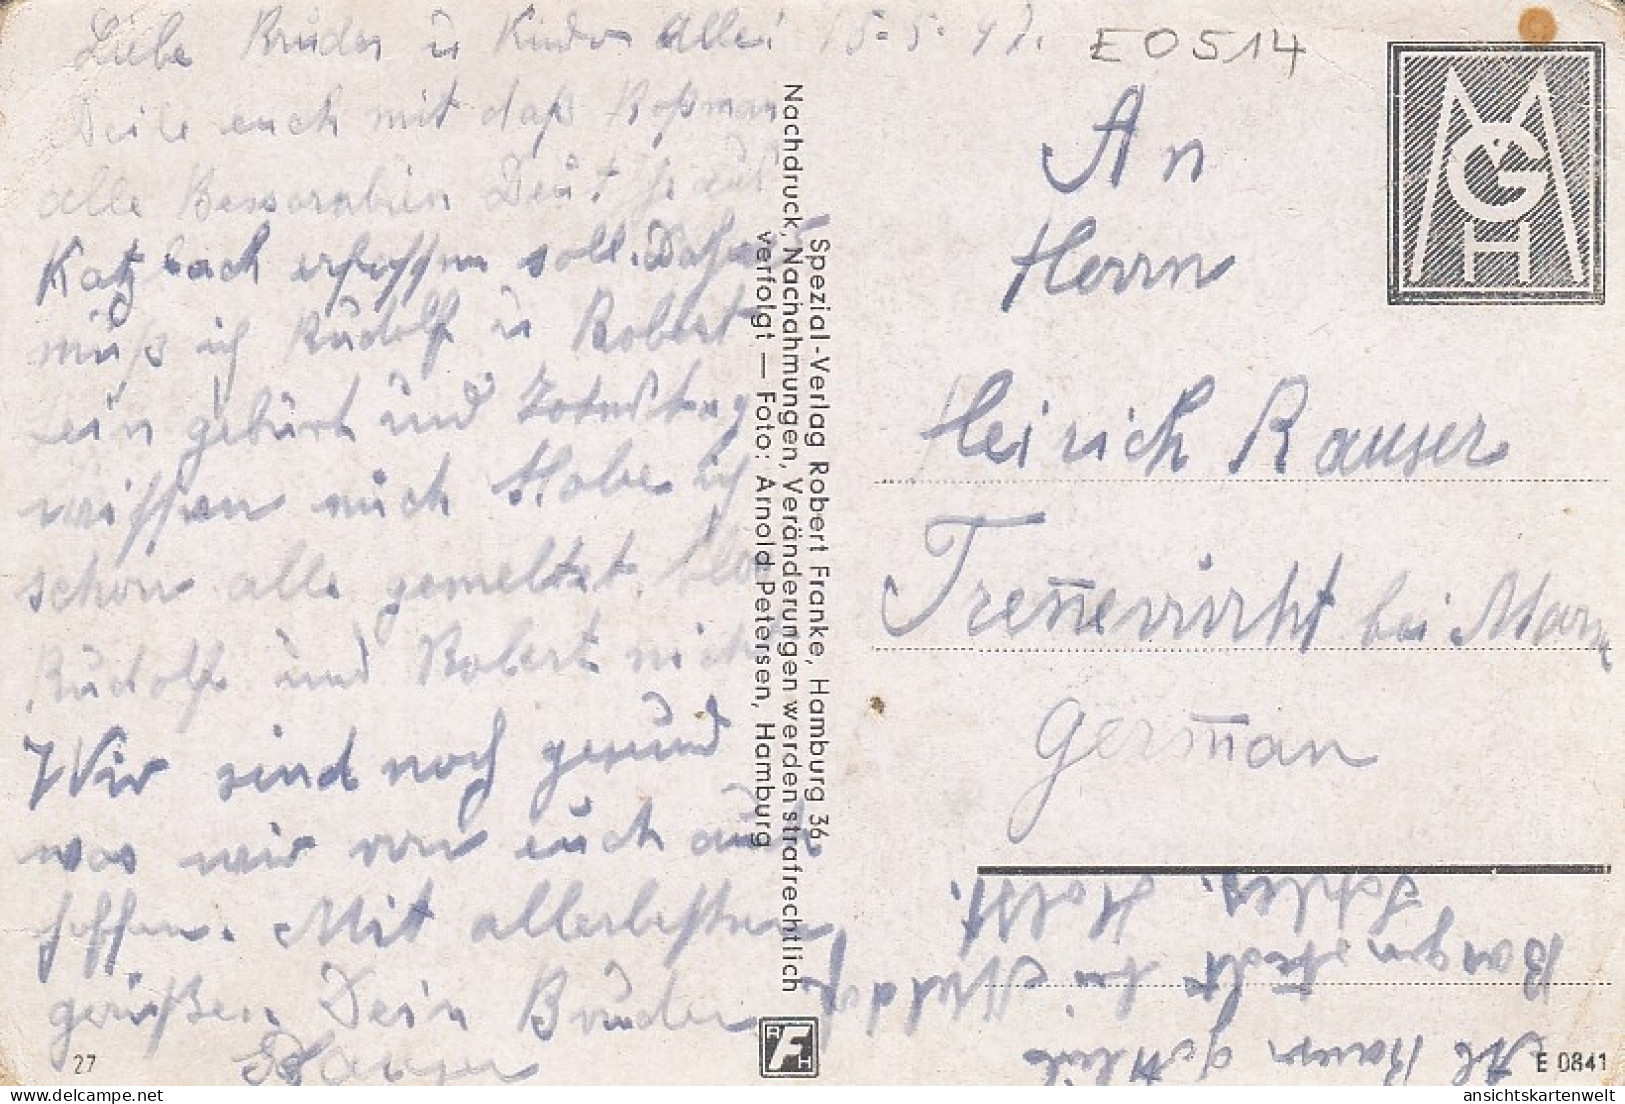 Liebe Bruder u Kinder alle! 15.5.47.
Teile euch mit daß Roßman
alle Bessarabien Deut
Katzbach erfassen soll. Daher
muß ich Rudolf u Robert
sein geburt und
wissen
Habe ich
schon alle gemeldet
Rudolf und Robert nicht
Wir sind noch gesund
was wir von euch auch
hoffen. Mit allerbesten
grüßen. Dein Bruder
27
Spezial-Verlag Robert Franke, Hamburg 36,
Nachdruck, Nachahmungen, Veränderungen werden strafrechtlich
verfolgt — Foto: Arnold Petersen, Hamburg
RFH
E0514
MGH
An
Herrn
Heirich Rauser
Trennewurht bei Marne
German
Bargenstedt bei Meldorf
Schles. Holst.
E 0841
ansichtskartenwelt